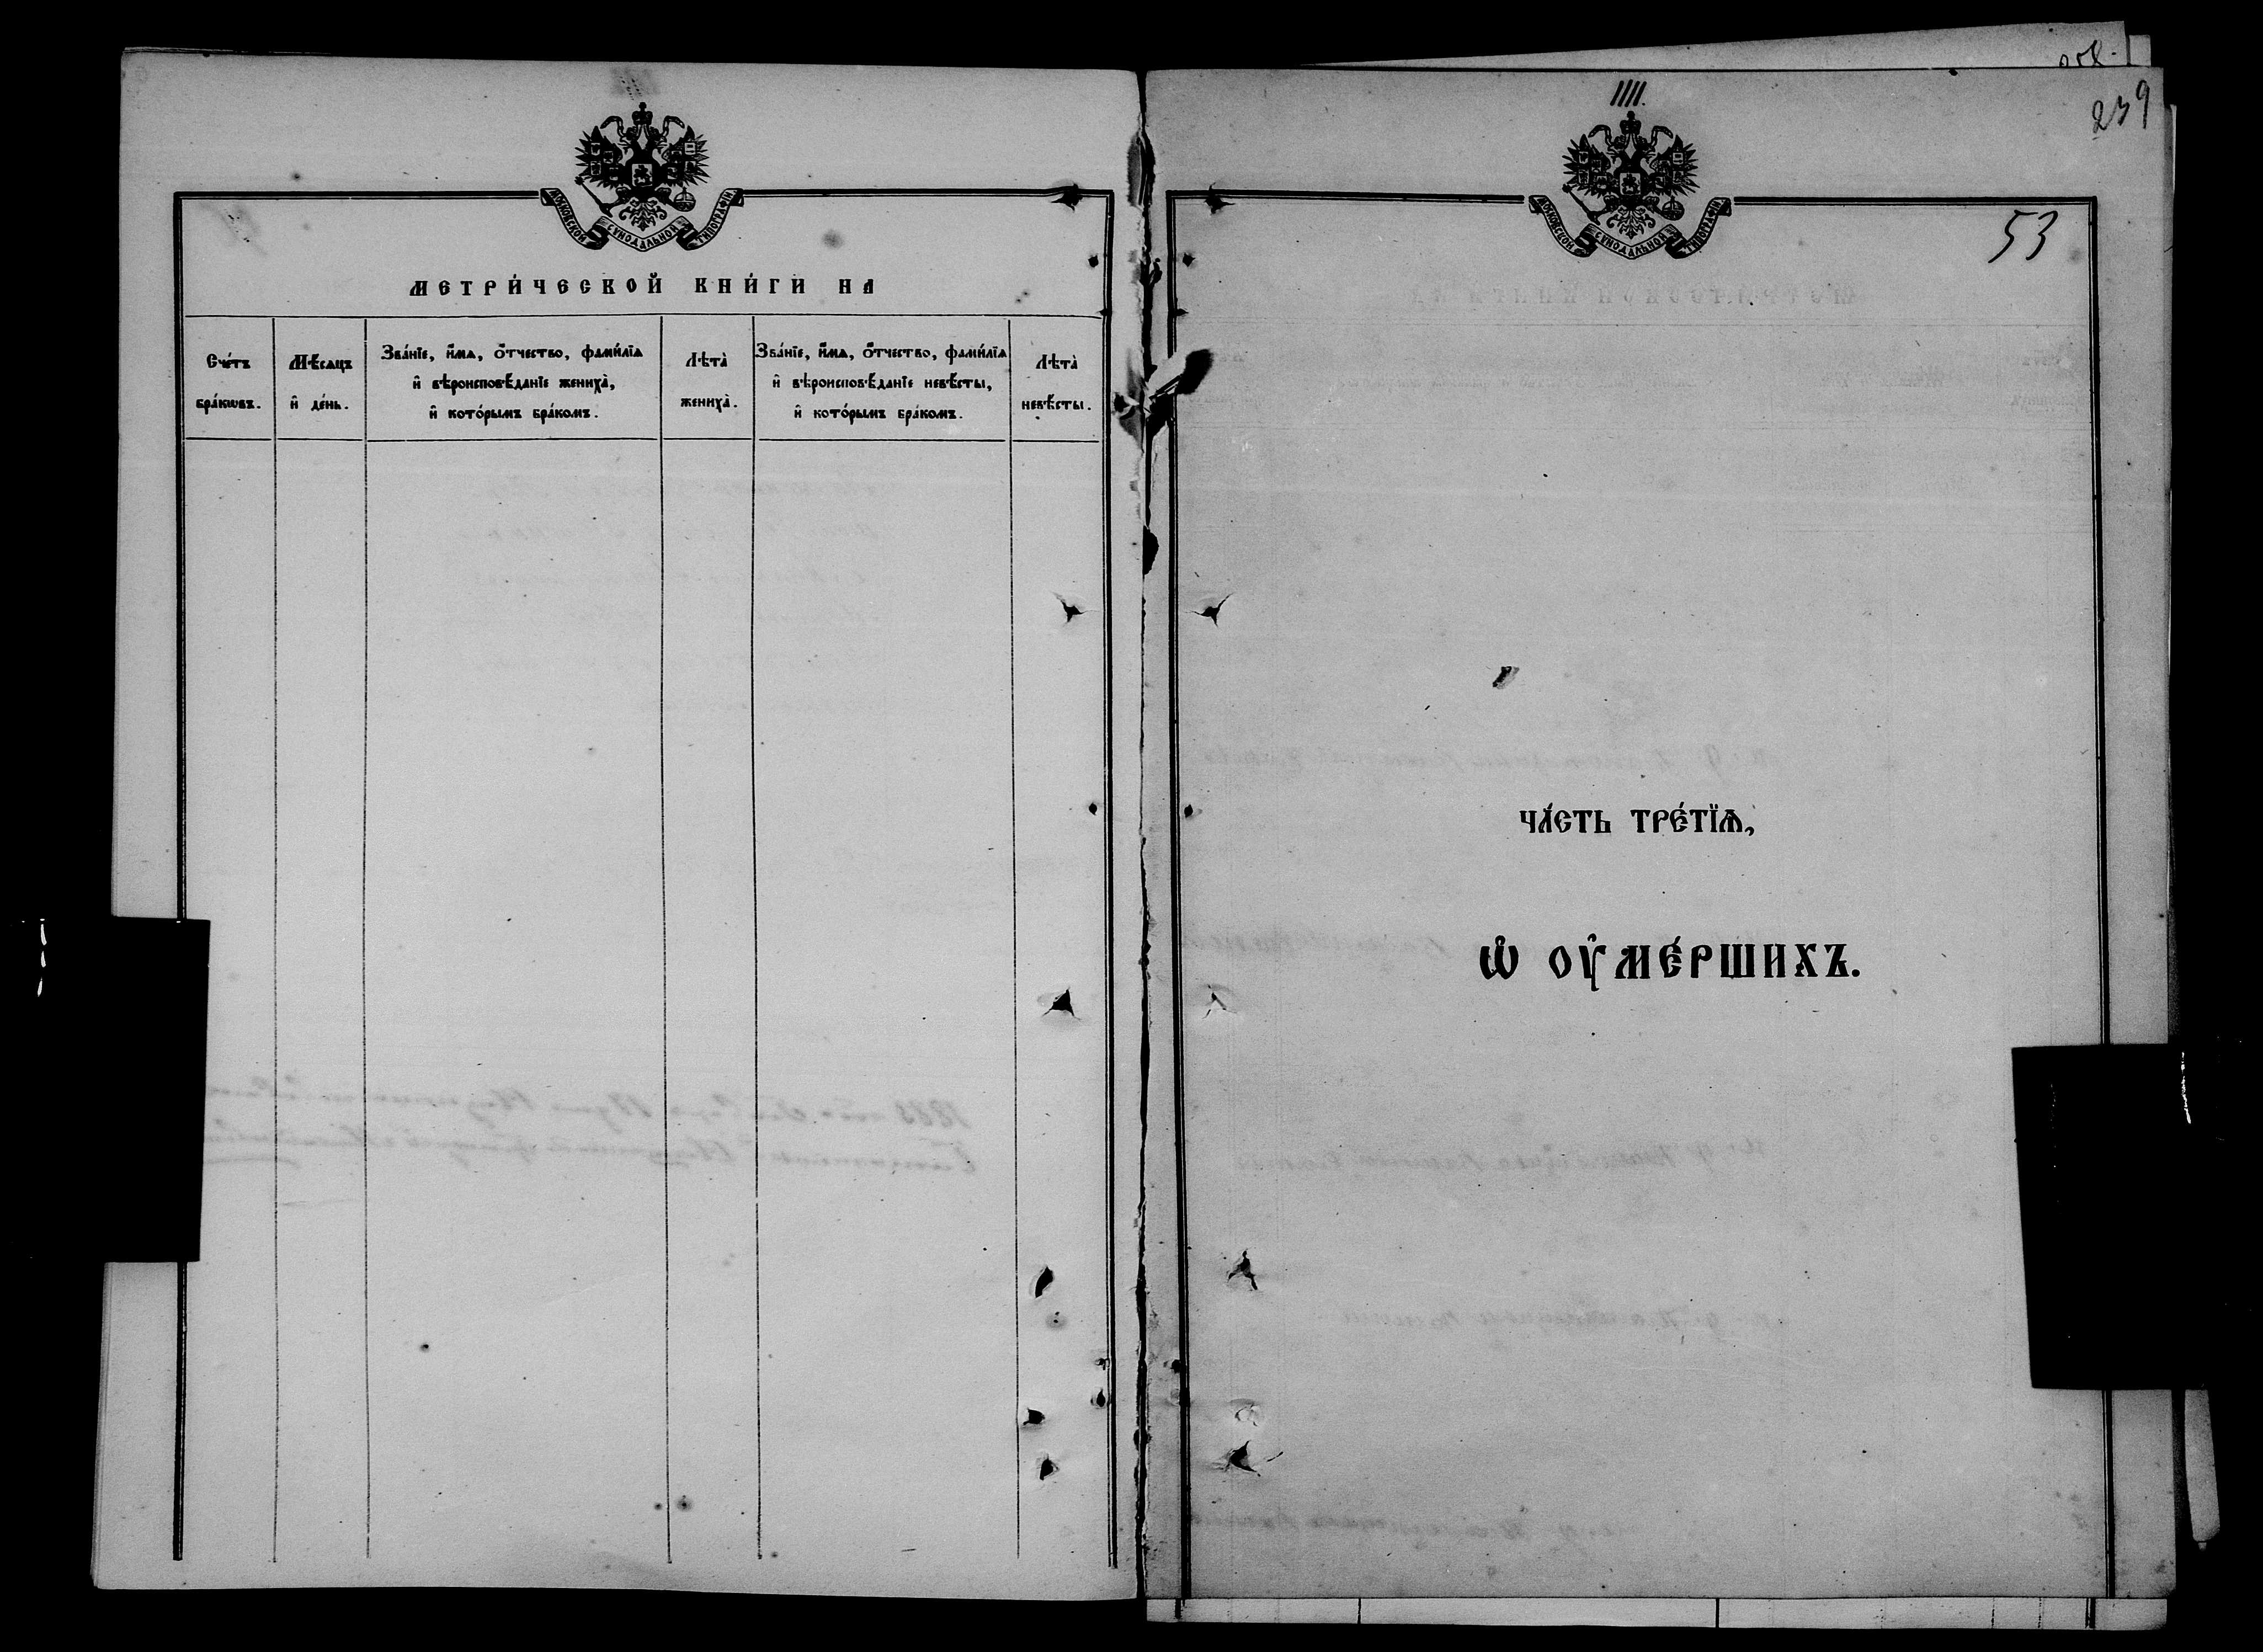 МОСКОВСКОЙ СУНОДАЛЬНОЙ ТИПОГРАФІИ
МЕТРИ́ЧЕСКОЙ КНИ́ГИ НА
Сче́тъ
бра́кѡвъ.
Мѣ́сяцъ
и҆ де́нь.
Зва́нїе, и҆́мѧ, ѻ҆́тчество, фами́лїѧ
и҆ вѣроисповѣ́данїе жениха̀,
и҆ кото́рымъ бра́комъ.
Лѣта̀
жениха̀.
Зва́нїе, и҆́мѧ, ѻ҆́тчество, фами́лїѧ
и҆ вѣроисповѣ́данїе невѣ́сты,
и҆ кото́рымъ бра́комъ.
Лѣта̀
невѣ́сты.
258.
239
IIII.
МОСКОВСКОЙ СУНОДАЛЬНОЙ ТИПОГРАФІИ
53
ЧА́СТЬ ТРЕ́ТЇѦ,
Ѡ҆ ОУ҆МЕ́РШИХЪ.